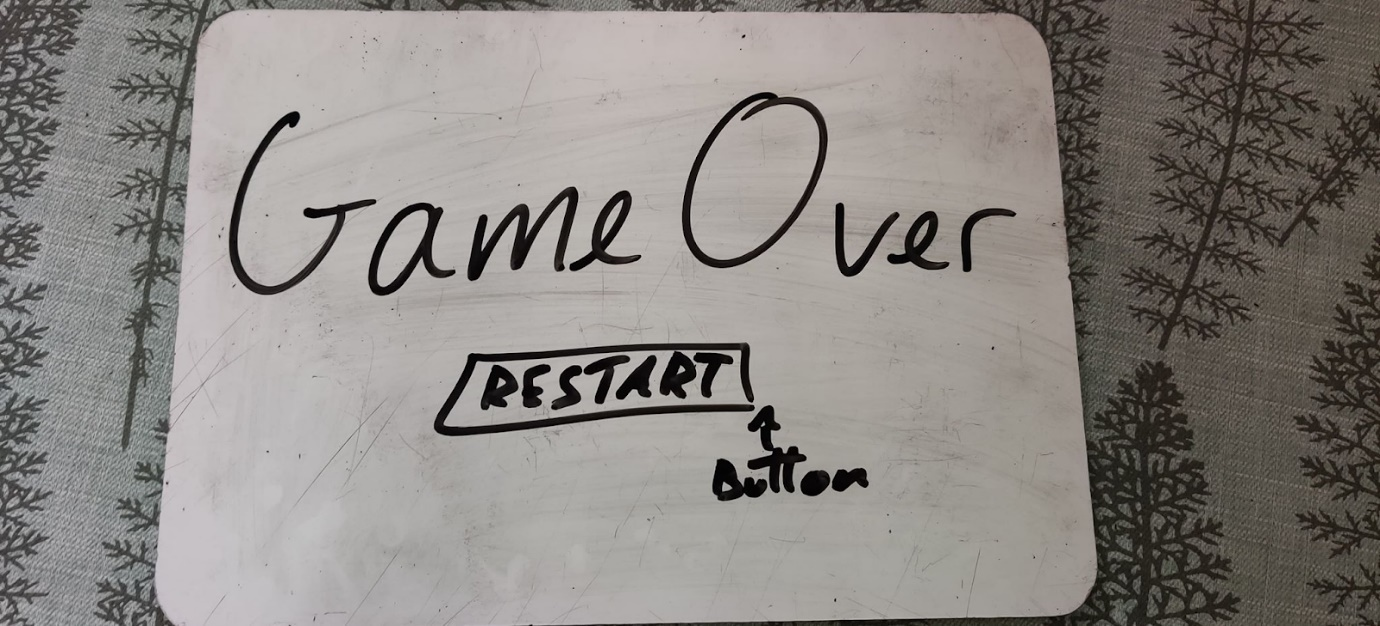 Game Over
RESTART
Button